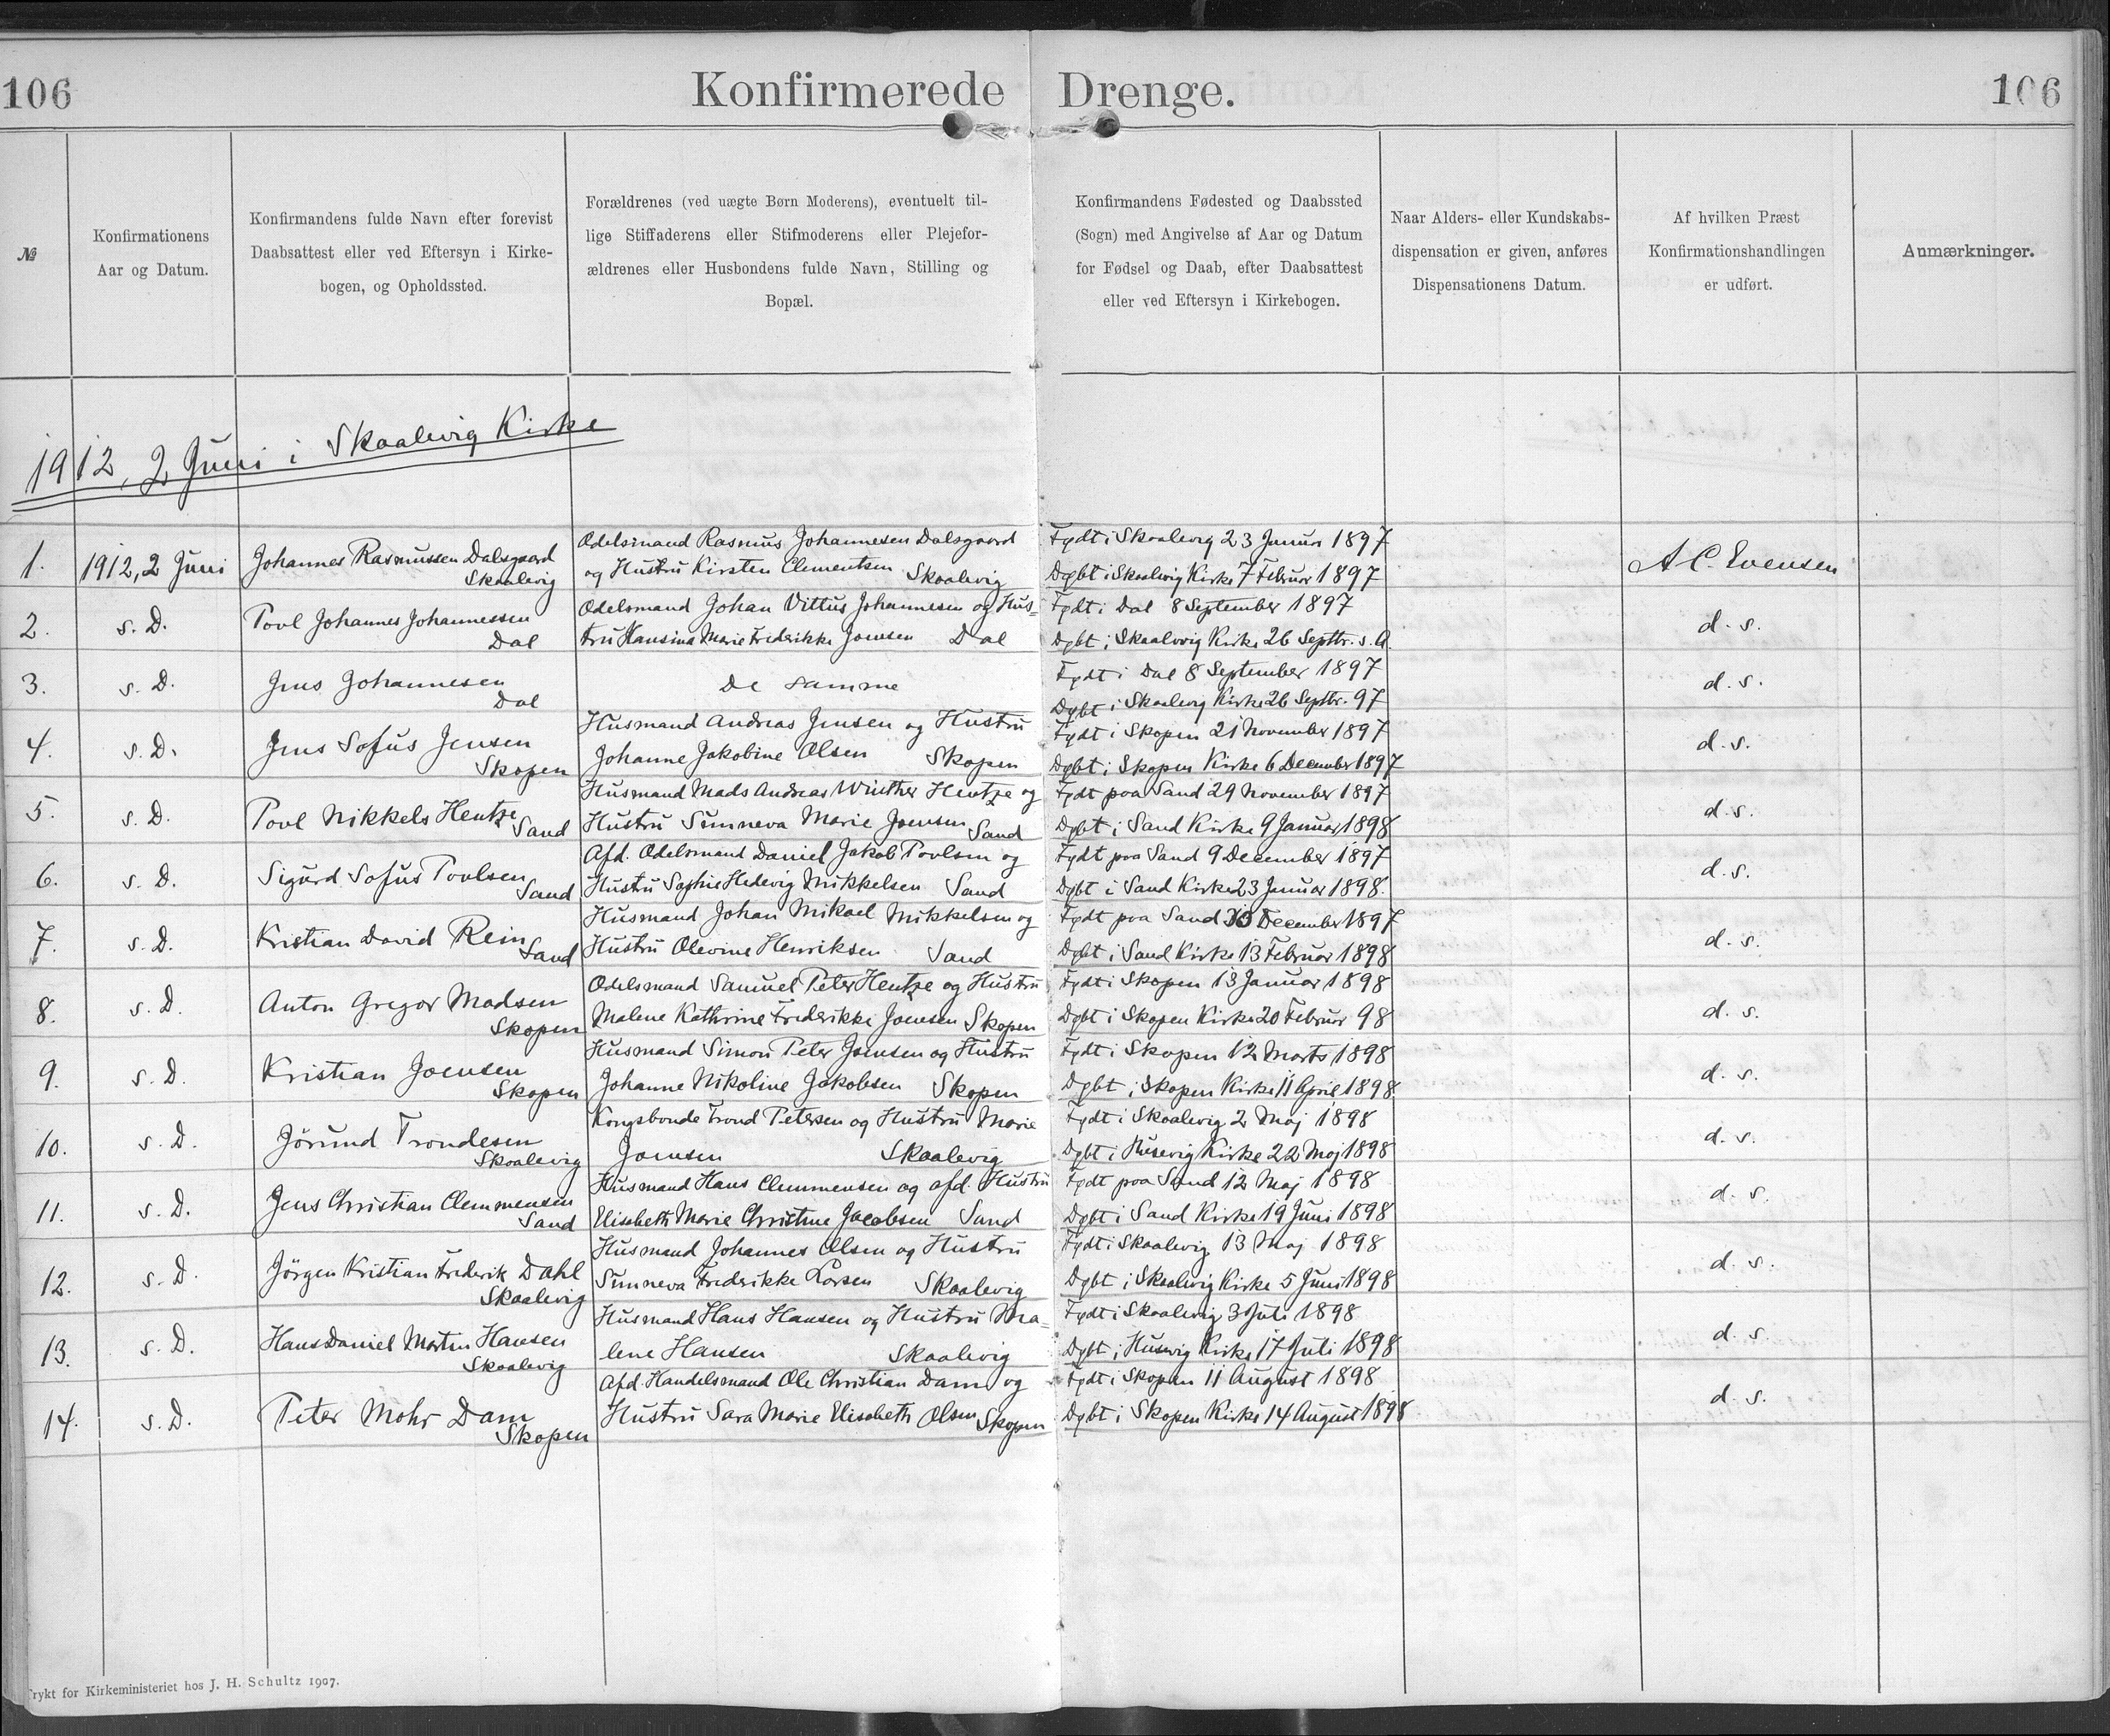 106
Konfirmerede Drenge.
106
№
Konfirmationens
Aar og Datum.
Konfirmandens fulde Navn efter forevist
Daabsattest eller ved Eftersyn i Kirke-
bogen, og Opholdssted.
Forældrenes (ved uægte Børn Moderens), eventuelt til-
lige Stiffaderens eller Stifmoderens eller Plejefor-
ældrenes eller Husbondens fulde Navn, Stilling og
Bopæl.
Konfirmandens Fødested og Daabssted
(Sogn) med Angivelse af Aar og Datum
for Fødsel og Daab, efter Daabsattest
eller ved Eftersyn i Kirkebogen.
Naar Alders- eller Kundskabs-
dispensation er given, anføres
Dispensationens Datum.
Af hvilken Præst
Konfirmationshandlingen
er udført.
Anmærkninger.
1912, 2 Juni i Skaalevig Kirke
1.
1912, 2 Juni
Johannes Rasmussen Dalsgaard
Skaalevig
Odelsmand Rasmus Johannesen Dalsgaard
og Hustru Kirsten Clementsen Skaalevig
Fydt i Skaalevig 23 Januar 1897
Døbt i Skaalevig Kirke 7 Februar 1897
A C. Evensen
2.
s. D.
Povl Johannes Johannessen
Dal
Odelsmand Johan Vittus Johannesen og Hus-
tru Hansina Marie Frederikke Joensen Dal
Fydt i Dal 8 September 1897
Døbt i Skaalevig Kirke 26 Septbr. s. A.
d. s.
3.
s. D.
Jens Johannesen
Dal
De samme
Fydt i Dal 8 September 1897
Døbt i Skaalevig Kirke 26 Septbr. 97
d. s.
4.
s. D.
Jens Sofus Jensen
Skopen
Husmand Andreas Jensen og Hustru
Johanne Jakobine Olsen Skopen
Fydt i Skopen 21 November 1897
Døbt i Skopen Kirke 6 December 1897
d. s.
5.
s. D.
Povl Nikkels Hentze
Sand
Husmand Mads Andreas Winther Hentze og
Hustru Sunneva Marie Joensen Sand
Fydt paa Sand 29 November 1897
Døbt i Sand Kirke 9 Januar 1898
d. s.
6.
s. D.
Sigurd Sofus Poulsen
Sand
Afd. Odelsmand Daniel Jakob Povlsen og
Hustru Sophie Hedevig Mikkelsen Sand
Fydt paa Sand 9 December 1897
Døbt i Sand Kirke 23 Januar 1898
d. s.
7.
s. D.
Kristian David Rein
Sand
Husmand Johan Mikael Mikkelsen og
Hustru Olevine Henriksen Sand
Fydt paa Sand December 1897
Døbt i Sand Kirke 13 Februar 1898
d. s.
8.
s. D.
Anton Gregor Madsen
Skopen
Odelsmand Samuel Peter Hentze og Hustru
Malene Kathrine Frederikke Joensen Skopen
Fydt i Skopen 13 Januar 1898
Døbt i Skopen Kirke 20 Februar 98
d. s.
9.
s. D.
Kristian Joensen
Skopen
Husmand Simon Peter Joensen og Hustru
Johanne Nikoline Jakobsen Skopen
Fydt i Skopen 12 Marts 1898
Døbt i Skopen Kirke 11 April 1898
d. s.
10.
s. D.
Jörund Trondesen
Skaalevig
Kongsbonde Trond Petersen og Hustru Marie
Joensen Skaalevig
Fydt i Skaalevig 2 Maj 1898
Døbt i Husevig Kirke 22 Maj 1898
d. s.
11.
s. D.
Jens Christian Clemmensen
Sand
Husmand Hans Clemmensen og afd. Hustru
Elisabeth Marie Christine Jacobsen Sand
Fydt paa Sand 12 Maj 1898
Døbt i Sand Kirke 19 Juni 1898
d. s.
12.
s. D.
Jörgen Kristian Frederik Dahl
Skaalevig
Husmand Johannes Olsen og Hustru
Sunneva Frederikke Larsen Skaalevig
Fydt i Skaalevig 13 Maj 1898
Døbt i Skaalevig Kirke 5 Juni 1898
d. s.
13.
s. D.
Hans Daniel Martin Hansen
Skaalevig
Husmand Hans Hansen og Hustru Ma-
lene Hansen Skaalevig
Fydt i Skaalevig 3 Juli 1898
Døbt i Husevig Kirke 17 Juli 1898
d. s.
14.
s. D.
Peter Mohr Dam
Skopen
Afd. Handelsmand Ole Christian Dam og
Hustru Sara Marie Elisabeth Olsen Skopen
Fydt i Skopen 11 August 1898
Døbt i Skopen Kirke 14 August 1898
d. s.
Trykt for Kirkeministeriet hos J. H. Schultz 1907.